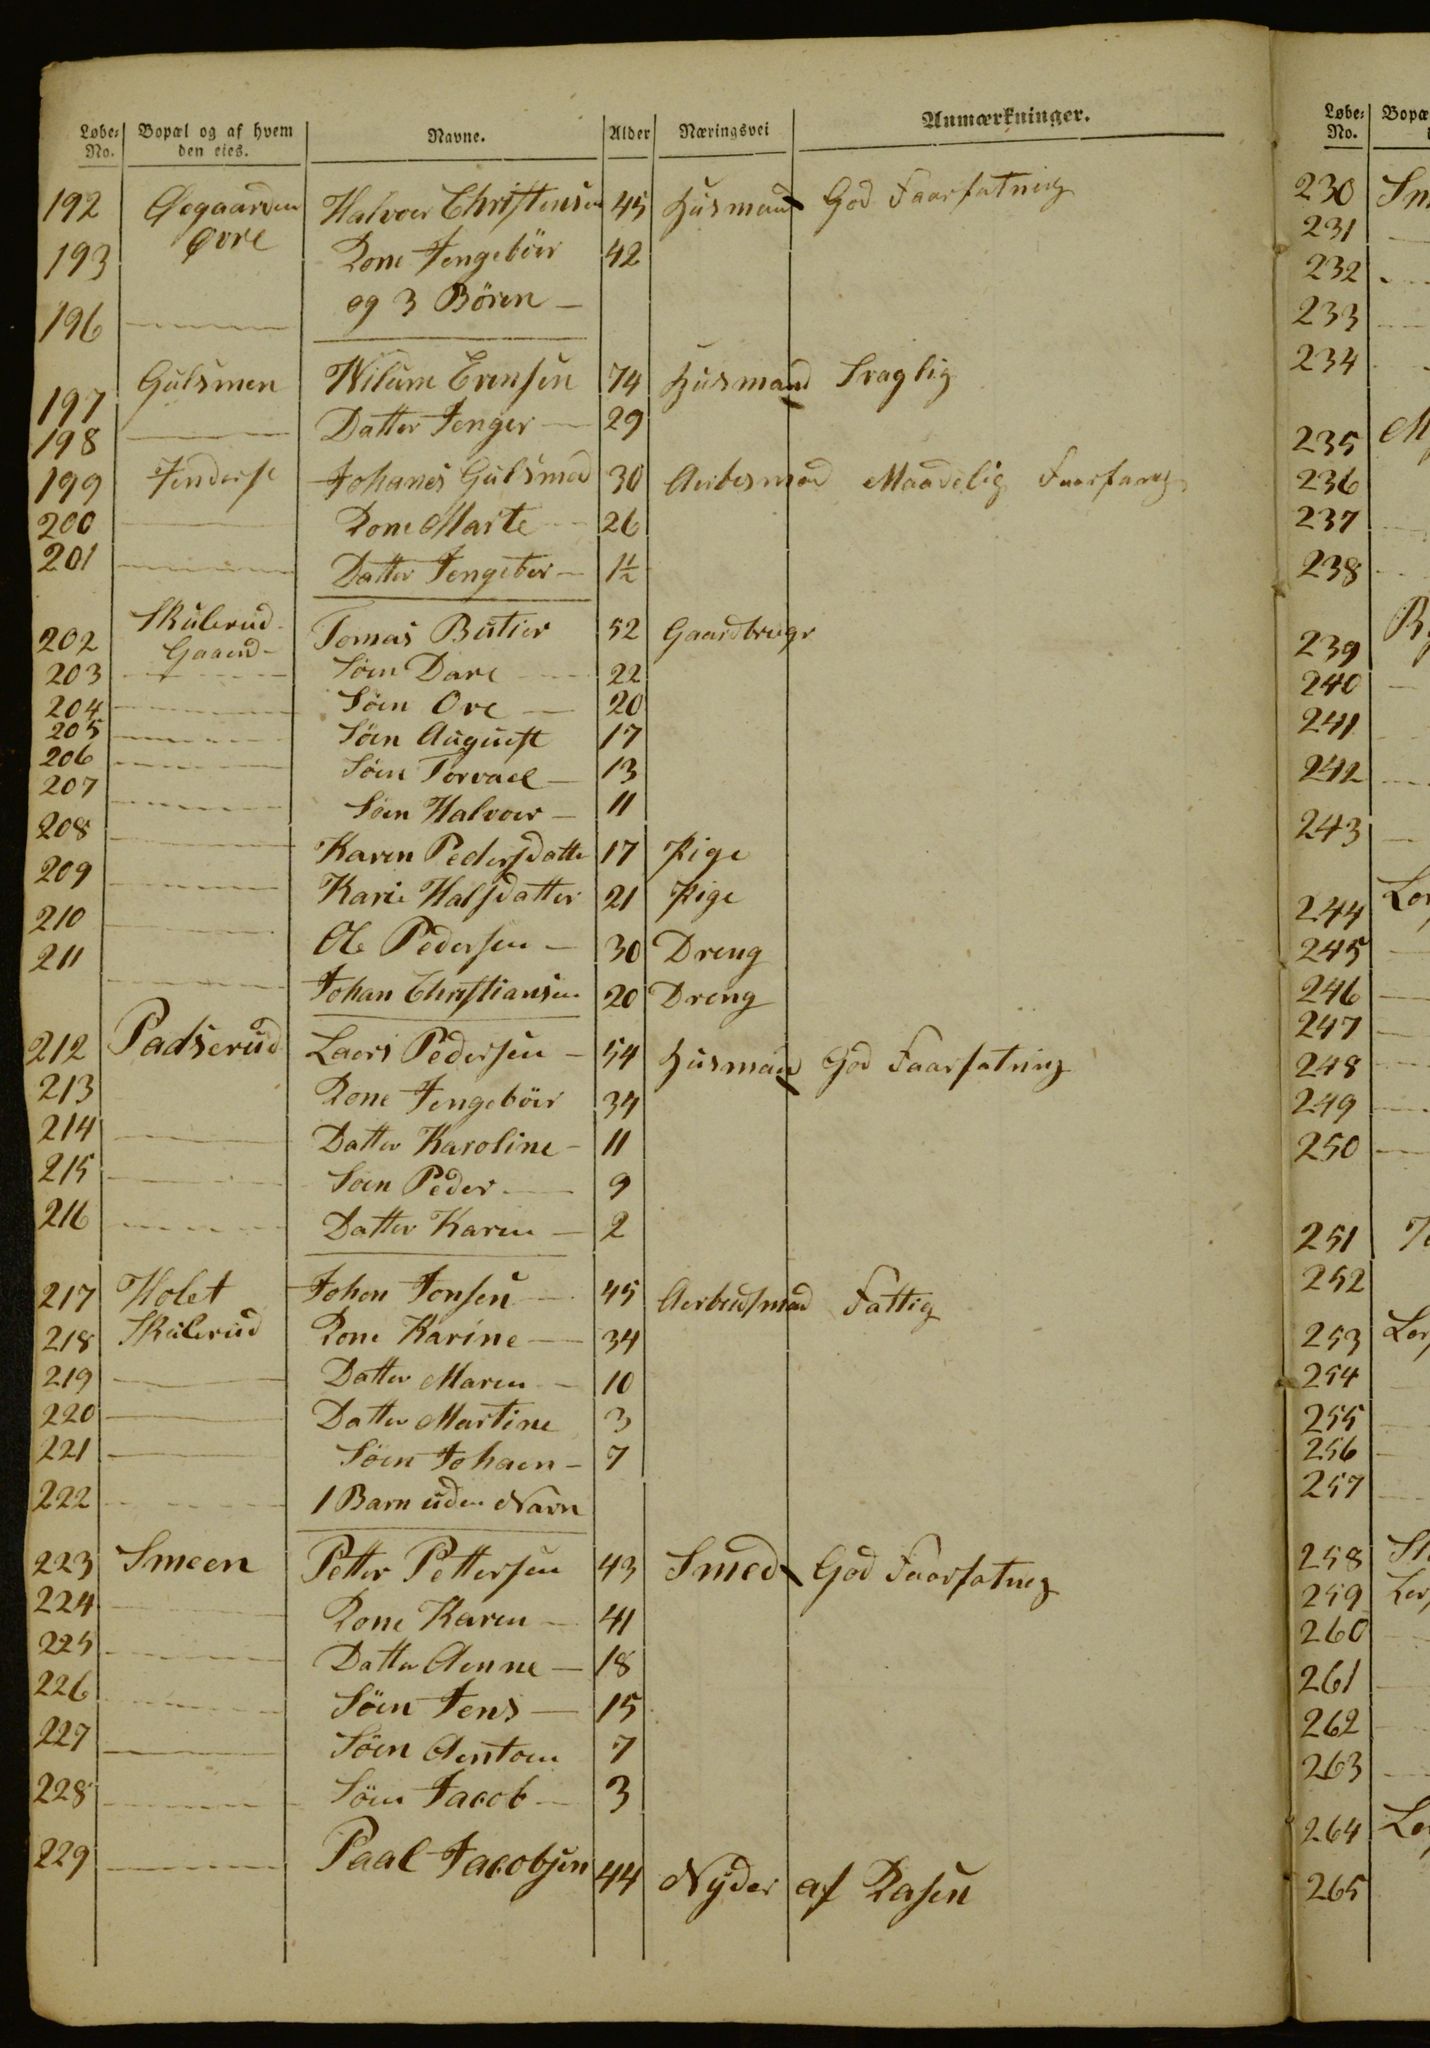 Løbe-No. Bopæl og af hvem den eies. Navne. Alder Næringsvei Anmærkninger.
192 Øegaarden Halvoer Christensen 45 Husmand God Faarfatning
193 Øvre Kone Jengeböer 42
196 og 3 Bören
197 Gulsmen Wilum Evensen 74 Husmand Svaglig
198 Datter Jenger 29
199 Johanes Gulsmed 30 Aerbesmad Maadelig
200 Kone Marte 26
201 Datter Jengeber 1½
202 Skulerud Tomas Butier 52 Gaardbruger
203 Gaard Söen Dave 22
204 Söen Ove 20
205 Söen August 17
206 Söen Torvael 13
207 Söen Halvoer 11
208 Karen Pedersdatte 17 Pige
209 Karie Halsdatter 21 Pige
210 Ole Pedersen 30 Dreng
211 Johan Christiansen 20 Dreng
212 Padserud Laers Pedersen 54 Husmand God Faarfatning
213 Kone Jengeböer 34
214 Datter Karoline 11
215 Söen Peder 9
216 Datter Karen 2
217 Holet Johen Jonsen 45 Aerbeidsmad Fattig
218 Skulerud Kone Karine 34
219 Datter Maren 10
220 Datter Martine 3
221 Söen Johaen 7
222 1 Barn uden Navn
223 Smeen Petter Pettersen 43 Smed God Faarfatneg
224 Kone Karen 41
225 Datter Aenne 18
226 Söen Jens 15
227 Söen Aentoen 7
228 Söen Jacob 3
229 Paal Jacobsen 44 Nyder af Kasen
Løbe-No. Bopæ
230 Sm
231
232
233
234
235
236
237
238
239
240
241
242
243
244 Ler
245
246
247
248
249
250
251
252
253 Ler
254
255
256
257
258
259 Ler
260
261
262
263
264 Le
265